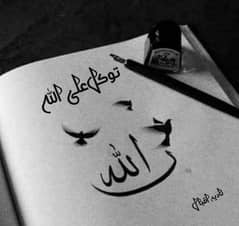 توكل على الله
الله